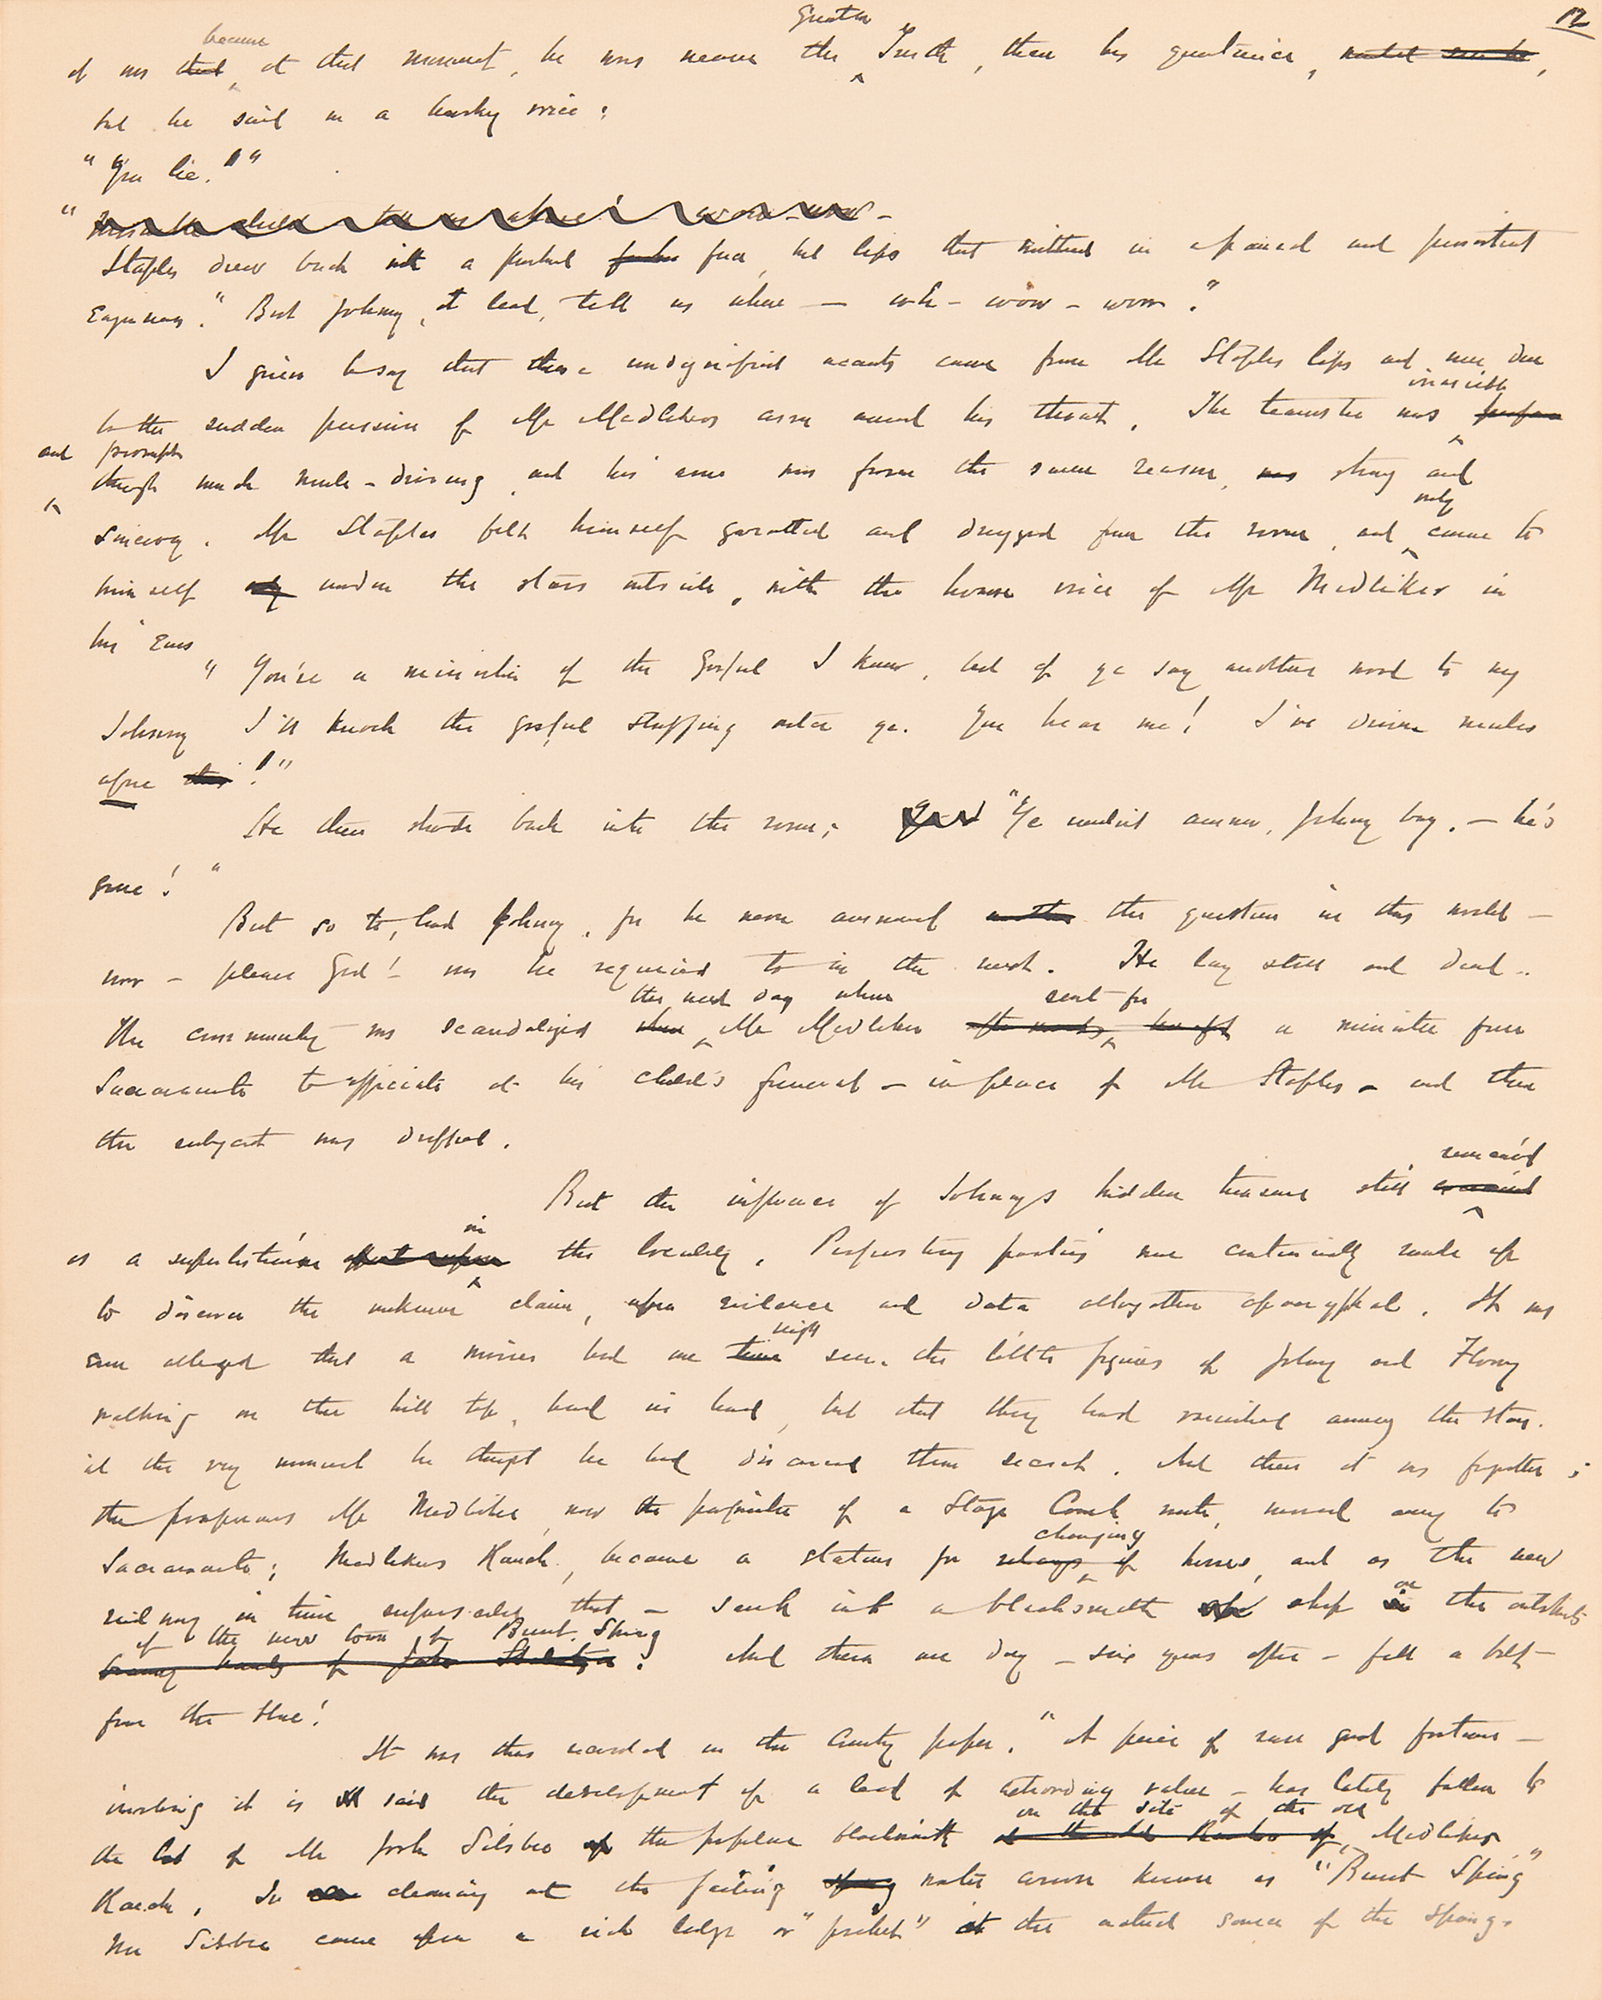 12
because greater
of was that, at that moment, he was nearer the Truth, than his questioner,
but he said in a husky voice:
"You lie!"
"
Staples drew back with a pained face, but lips that writhed in a pained and persistent
eagerness. "But Johnny, at least, tell us where — wh - wow - wow."
I grieve to say that these undignified accents came from Mr Staples lips and were due
irascible
to the sudden pressure of Mr Medlikers arm around his throat. The teamster was
and prompt
through much mule-driving, and his arm was from the same reason, strong and
only
sinewy. Mr Staples felt himself garotted and dragged from the room, and came to
himself under the stars outside, with the hoarse voice of Mr Medliker in
his ears
"You're a minister of the Gospel I know, but ef ye say another word to my
Johnny I'll knock the gospel stuffing outer ye. You hear me! I've driven mules
afore!"
He then strode back into the room; "Ye needn't answer, Johnny boy, — he's
gone!"
But so to, had Johnny, for he never answered the question in this world —
nor - please God! was he required to in the next. He lay still and dead.
the next day when sent for
The community was scandalized when Mr Medliker a minister from
Sacramento to officiate at his child's funeral - in place of Mr Staples - and then
the subject was dropped.
remained
But the influence of Johnny's hidden treasure still
in
as a superstition the locality. Prospecting parties were continually made up
to discover the unknown claim, upon evidence and data altogether apocryphal. It was
night
even alleged that a miner had one time seen the little figures of Johnny and Florry
walking on the hill top, hand in hand, but that they had vanished among the stars
at the very moment he thought he had discovered their secret. And then it was forgotten;
the prosperous Mr Medliker, now the proprietor of a Stage Coach route, moved away to
changing
Sacramento; Medlikers Ranch, became a station for relays of horses, and as the new
on
railway in time superseded that - sank into a blacksmith shop in the outskirts
of the new town of Burnt Spring
. And then one day - six years after - fell a bolt
from the blue!
It was thus recorded in the County paper. "A piece of rare good fortune —
involving it is said the development of a lead of extraordinary value - has lately fallen to
on the site of the old
the lot of Mr John Silsbee the popular blacksmith Medliker
Ranch. In cleaning out the failing water course known as "Burnt Spring"
Mr Silsbee came upon a rich ledge or "pocket" at the actual source of the spring.